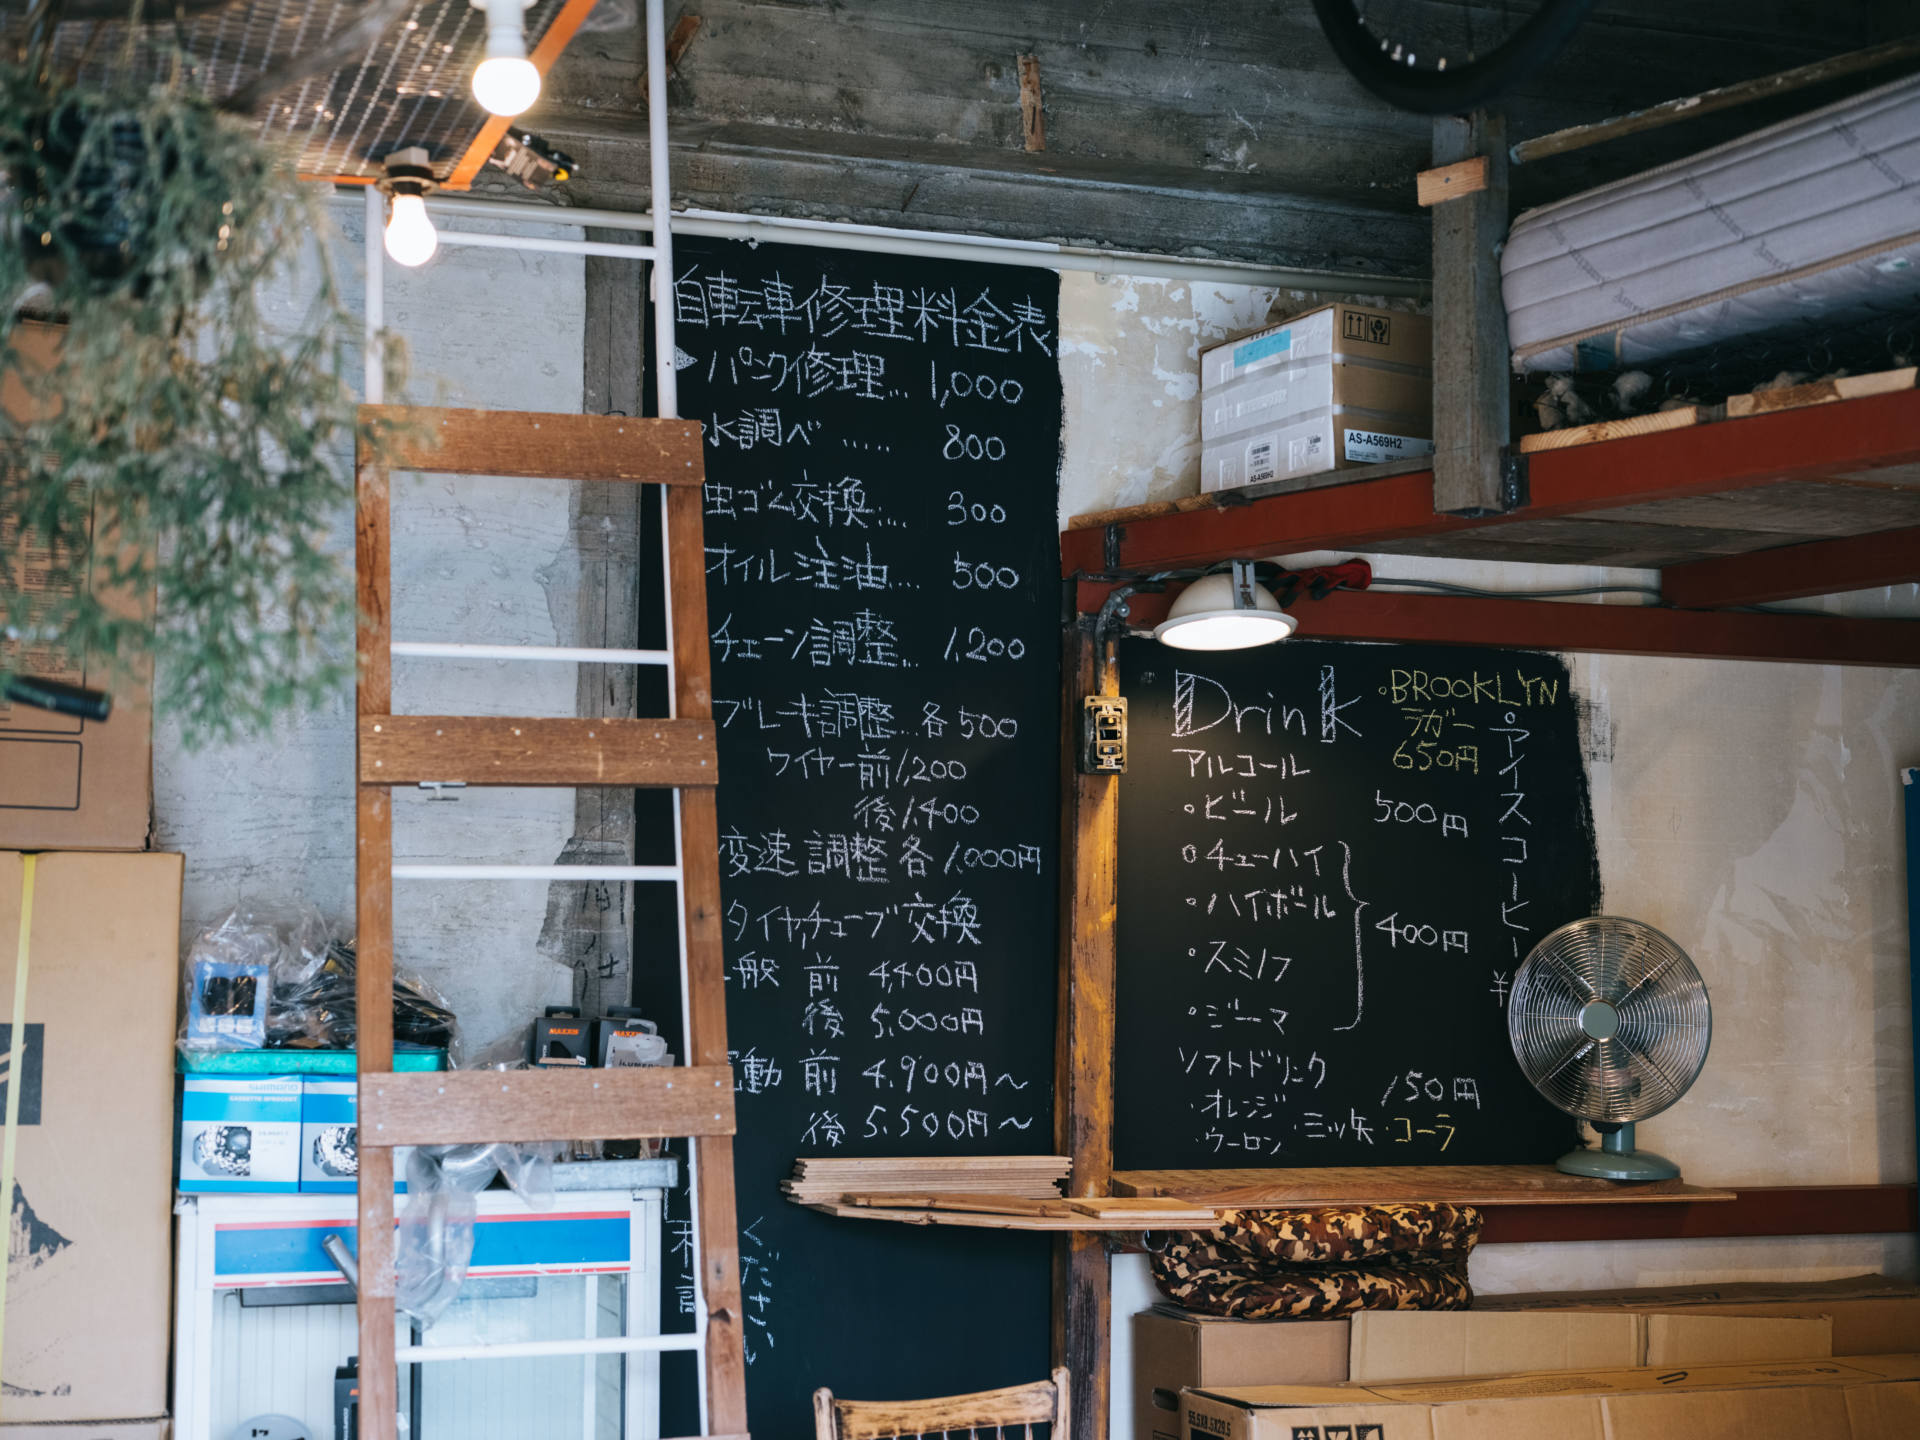 自転車修理料金表
パンク修理... 1,000
水調べ ...... 800
虫ゴム交換.... 300
オイル注油.... 500
チェーン調整... 1,200
ブレーキ調整...各500
ワイヤー前1,200
後1,400
変速調整各1,000円
タイヤ,チューブ交換
一般 前 4,400円
後 5,000円
動 前 4,900円〜
後 5,500円〜
ください
Drink
アルコール
・ビール 500円
・チューハイ
・ハイボール
・スミノフ
・ジーマ
400円
ソフトドリンク 150円
・オレンジ
・ウーロン ・三ツ矢 ・コーラ
・BROOKLYN
ラガー
650円
・アイスコーヒー ¥
AS-A569H2
AS-A569H2
MAXXIS
MAXXIS
SHIMANO
CASSETTE SPROCKET
55.5X8.5X29.5